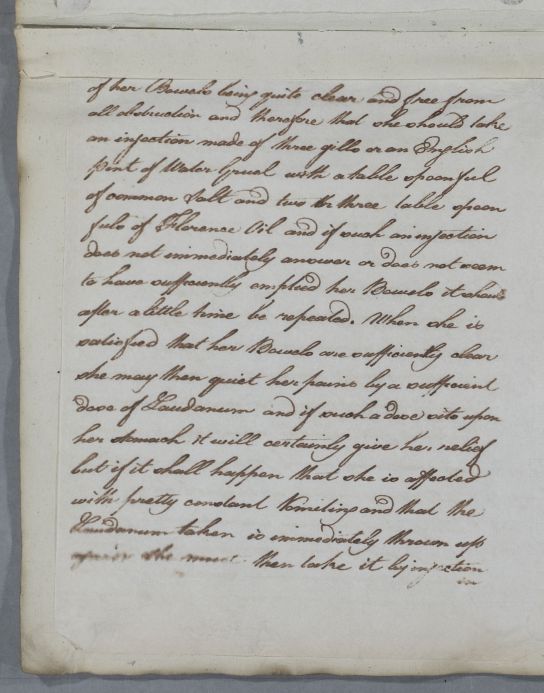 of her Bowels being quite clear and free from
all obstruction and therefore that she should take
an injection made of three gills or an English
pint of Water Gruel with a table spoonful
of common Salt and two or three table spoon
fuls of Florence Oil and if such an injection
does not immediately answer or does not seem
to have sufficiently emptied her Bowels it should
after a little time be repeated. When she is
satisfied that her Bowels are sufficiently clear
she may then quiet her pains by a sufficient
dose of Laudanum and if such a dose sits upon
her stomach it will certainly give her relief
but if it shall happen that she is affected
with pretty constant Vomiting and that the
Laudanum taken is immediately thrown up
again she must then take it by injection
in